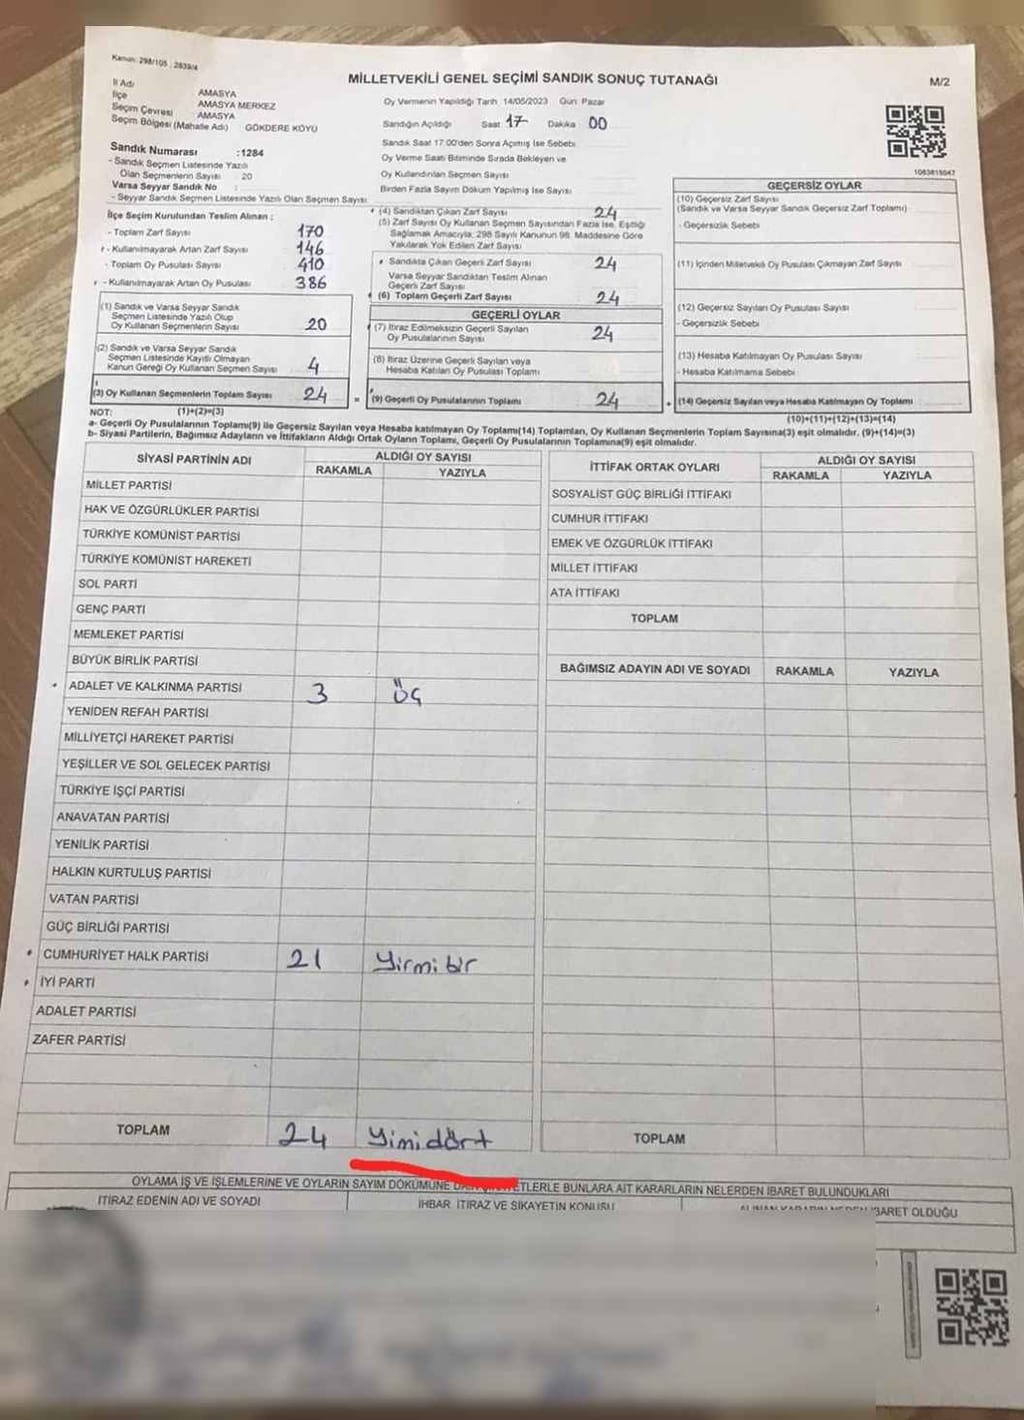 Kanun: 298/105 , 2839/4
MİLLETVEKİLİ GENEL SEÇİMİ SANDIK SONUÇ TUTANAĞI
M/2
İl Adı AMASYA
İlçe AMASYA MERKEZ
Seçim Çevresi AMASYA
Seçim Bölgesi (Mahalle Adı) GÖKDERE KÖYÜ
Sandık Numarası :1284
- Sandık Seçmen Listesinde Yazılı
Olan Seçmenlerin Sayısı 20
Varsa Seyyar Sandık No :
- Seyyar Sandık Seçmen Listesinde Yazılı Olan Seçmen Sayısı:
Oy Vermenin Yapıldığı Tarih 14/05/2023 Gün Pazar
Sandığın Açıldığı Saat 17 Dakika 00
Sandık Saat 17:00'den Sonra Açılmış İse Sebebi
Oy Verme Saati Bitiminde Sırada Bekleyen ve
Oy Kullandırılan Seçmen Sayısı
Birden Fazla Sayım Döküm Yapılmış İse Sayısı
1083815047
İlçe Seçim Kurulundan Teslim Alınan ;
- Toplam Zarf Sayısı 170
- Kullanılmayarak Artan Zarf Sayısı 146
- Toplam Oy Pusulası Sayısı 410
- Kullanılmayarak Artan Oy Pusulası 386
(1) Sandık ve Varsa Seyyar Sandık
Seçmen Listesinde Yazılı Olup
Oy Kullanan Seçmenlerin Sayısı 20
(2) Sandık ve Varsa Seyyar Sandık
Seçmen Listesinde Kayıtlı Olmayan
Kanun Gereği Oy Kullanan Seçmen Sayısı 4
(3) Oy Kullanan Seçmenlerin Toplam Sayısı 24 =
(4) Sandıktan Çıkan Zarf Sayısı 24
(5) Zarf Sayısı Oy Kullanan Seçmen Sayısından Fazla İse, Eşitliği
Sağlamak Amacıyla, 298 Sayılı Kanunun 98. Maddesine Göre
Yakılarak Yok Edilen Zarf Sayısı
Sandıkta Çıkan Geçerli Zarf Sayısı 24
Varsa Seyyar Sandıktan Teslim Alınan
Geçerli Zarf Sayısı
(6) Toplam Geçerli Zarf Sayısı 24
GEÇERLİ OYLAR
(7) İtiraz Edilmeksizin Geçerli Sayılan
Oy Pusulalarının Sayısı 24
(8) İtiraz Üzerine Geçerli Sayılan veya
Hesaba Katılan Oy Pusulası Toplamı
(9) Geçerli Oy Pusulalarının Toplamı 24 +
GEÇERSİZ OYLAR
(10) Geçersiz Zarf Sayısı
(Sandık ve Varsa Seyyar Sandık Geçersiz Zarf Toplamı)
- Geçersizlik Sebebi
(11) İçinden Milletvekili Oy Pusulası Çıkmayan Zarf Sayısı
(12) Geçersiz Sayılan Oy Pusulası Sayısı
- Geçersizlik Sebebi
(13) Hesaba Katılmayan Oy Pusulası Sayısı
- Hesaba Katılmama Sebebi
(14) Geçersiz Sayılan veya Hesaba Katılmayan Oy Toplamı
NOT: (1)+(2)=(3) (10)+(11)+(12)+(13)=(14)
a- Geçerli Oy Pusulalarının Toplamı(9) ile Geçersiz Sayılan veya Hesaba katılmayan Oy Toplamı(14) Toplamları, Oy Kullanan Seçmenlerin Toplam Sayısına(3) eşit olmalıdır. (9)+(14)=(3)
b- Siyasi Partilerin, Bağımsız Adayların ve İttifakların Aldığı Ortak Oyların Toplamı, Geçerli Oy Pusulalarının Toplamına(9) eşit olmalıdır.
SİYASİ PARTİNİN ADI ALDIĞI OY SAYISI
RAKAMLA YAZIYLA
MİLLET PARTİSİ
HAK VE ÖZGÜRLÜKLER PARTİSİ
TÜRKİYE KOMÜNİST PARTİSİ
TÜRKİYE KOMÜNİST HAREKETİ
SOL PARTİ
GENÇ PARTİ
MEMLEKET PARTİSİ
BÜYÜK BİRLİK PARTİSİ
ADALET VE KALKINMA PARTİSİ 3 Üç
YENİDEN REFAH PARTİSİ
MİLLİYETÇİ HAREKET PARTİSİ
YEŞİLLER VE SOL GELECEK PARTİSİ
TÜRKİYE İŞÇİ PARTİSİ
ANAVATAN PARTİSİ
YENİLİK PARTİSİ
HALKIN KURTULUŞ PARTİSİ
VATAN PARTİSİ
GÜÇ BİRLİĞİ PARTİSİ
CUMHURİYET HALK PARTİSİ 21 Yirmi bir
İYİ PARTİ
ADALET PARTİSİ
ZAFER PARTİSİ
TOPLAM 24 Yimidört
İTTİFAK ORTAK OYLARI ALDIĞI OY SAYISI
RAKAMLA YAZIYLA
SOSYALİST GÜÇ BİRLİĞİ İTTİFAKI
CUMHUR İTTİFAKI
EMEK VE ÖZGÜRLÜK İTTİFAKI
MİLLET İTTİFAKI
ATA İTTİFAKI
TOPLAM
BAĞIMSIZ ADAYIN ADI VE SOYADI RAKAMLA YAZIYLA
TOPLAM
OYLAMA İŞ VE İŞLEMLERİNE VE OYLARIN SAYIM DÖKÜMÜNE BUNLARA AİT KARARLARIN NELERDEN İBARET BULUNDUKLARI
İTİRAZ EDENİN ADI VE SOYADI İHBAR İTİRAZ VE ŞİKAYETİN KONUSU İBARET OLDUĞU